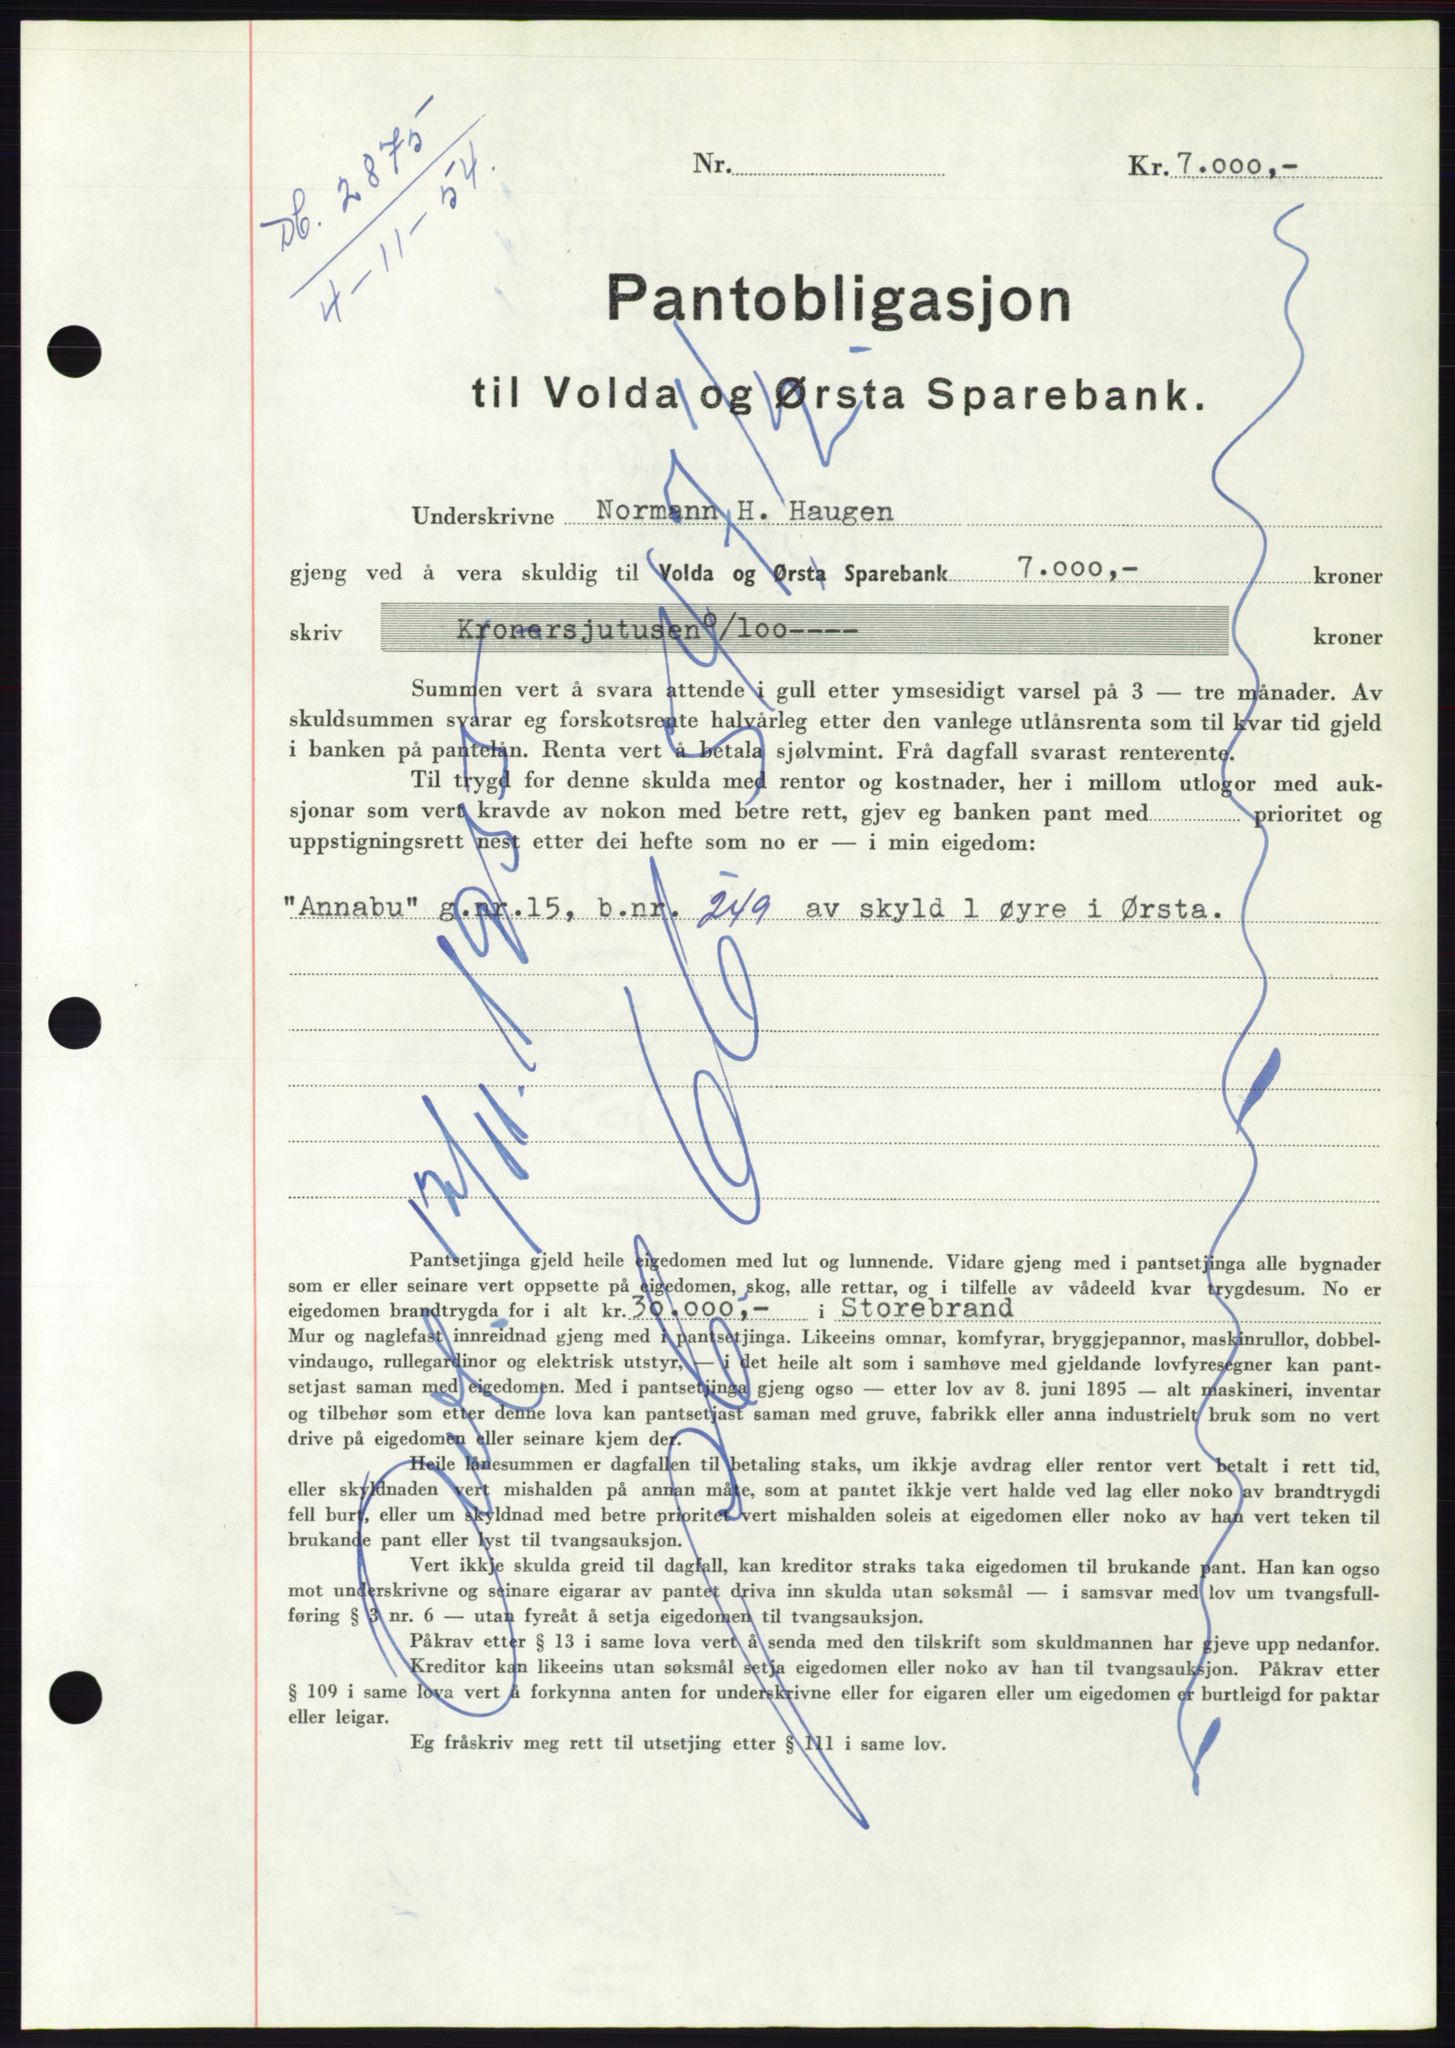 Db. 2875
4-11-54.
Nr. Kr. 7.000,-
Pantobligasjon
til Volda og Ørsta Sparebank.
Underskrivne Normann H. Haugen
gjeng ved å vera skuldig til Volda og Ørsta Sparebank 7.000,- kroner
skriv Kronersjutusen⁰/100---- kroner
Summen vert å svara attende i gull etter ymsesidigt varsel på 3 — tre månader. Av
skuldsummen svarar eg forskotsrente halvårleg etter den vanlege utlånsrenta som til kvar tid gjeld
i banken på pantelån. Renta vert å betala sjølvmint. Frå dagfall svarast renterente.
Til trygd for denne skulda med rentor og kostnader, her i millom utlogor med auk-
sjonar som vert kravde av nokon med betre rett, gjev eg banken pant med prioritet og
uppstigningsrett nest etter dei hefte som no er — i min eigedom:
"Annabu" g.nr.15, b.nr. 249 av skyld 1 øyre i Ørsta.
12/11. 1955
Pantsetjinga gjeld heile eigedomen med lut og lunnende. Vidare gjeng med i pantsetjinga alle bygnader
som er eller seinare vert oppsette på eigedomen, skog, alle rettar, og i tilfelle av vådeeld kvar trygdesum. No er
eigedomen brandtrygda for i alt kr. 30.000,- i Storebrand
Mur og naglefast innreidnad gjeng med i pantsetjinga. Likeeins omnar, komfyrar, bryggjepannor, maskinrullor, dobbel-
vindaugo, rullegardinor og elektrisk utstyr, — i det heile alt som i samhøve med gjeldande lovfyresegner kan pant-
setjast saman med eigedomen. Med i pantsetjinga gjeng ogso — etter lov av 8. juni 1895 — alt maskineri, inventar
og tilbehør som etter denne lova kan pantsetjast saman med gruve, fabrikk eller anna industrielt bruk som no vert
drive på eigedomen eller seinare kjem der.
Heile lånesummen er dagfallen til betaling staks, um ikkje avdrag eller rentor vert betalt i rett tid,
eller skyldnaden vert mishalden på annan måte, som at pantet ikkje vert halde ved lag eller noko av brandtrygdi
fell burt, eller um skyldnad med betre prioritet vert mishalden soleis at eigedomen eller noko av han vert teken til
brukande pant eller lyst til tvangsauksjon.
Vert ikkje skulda greid til dagfall, kan kreditor straks taka eigedomen til brukande pant. Han kan ogso
mot underskrivne og seinare eigarar av pantet driva inn skulda utan søksmål — i samsvar med lov um tvangsfull-
føring § 3 nr. 6 — utan fyreåt å setja eigedomen til tvangsauksjon.
Påkrav etter § 13 i same lova vert å senda med den tilskrift som skuldmannen har gjeve upp nedanfor.
Kreditor kan likeeins utan søksmål setja eigedomen eller noko av han til tvangsauksjon. Påkrav etter
§ 109 i same lova vert å forkynna anten for underskrivne eller for eigaren eller um eigedomen er burtleigd for paktar
eller leigar.
Eg fråskriv meg rett til utsetjing etter § 111 i same lov.